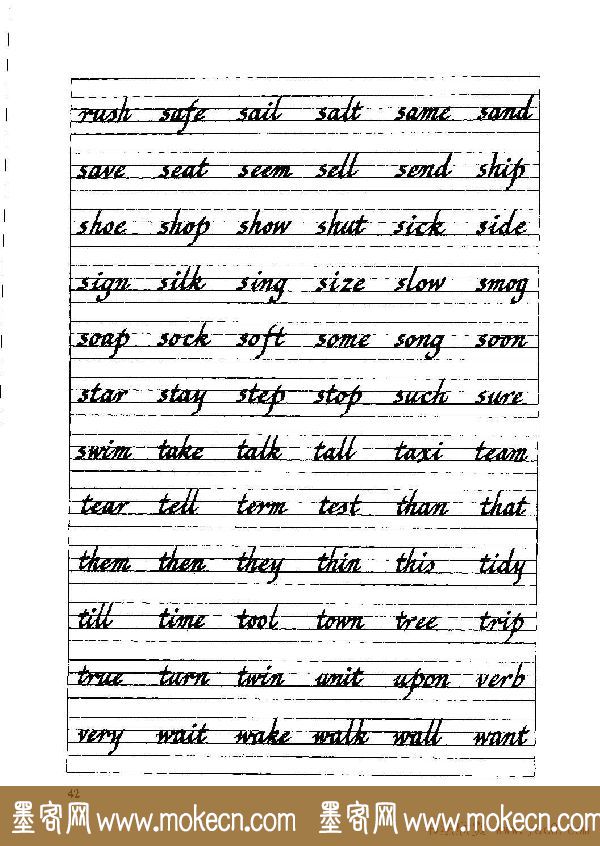 rush safe sail salt same sand
save seat seem sell send ship
shoe shop show shut sick side
sign silk sing size slow smog
soap sock soft some song soon
star stay step stop such sure
swim take talk tall taxi team
tear tell term test than that
them then they thin this tidy
till time tool town tree trip
true turn twin unit upon verb
very wait wake walk wall want
42
墨客网 www.mokecn.com 墨客网 www.mokecn.com